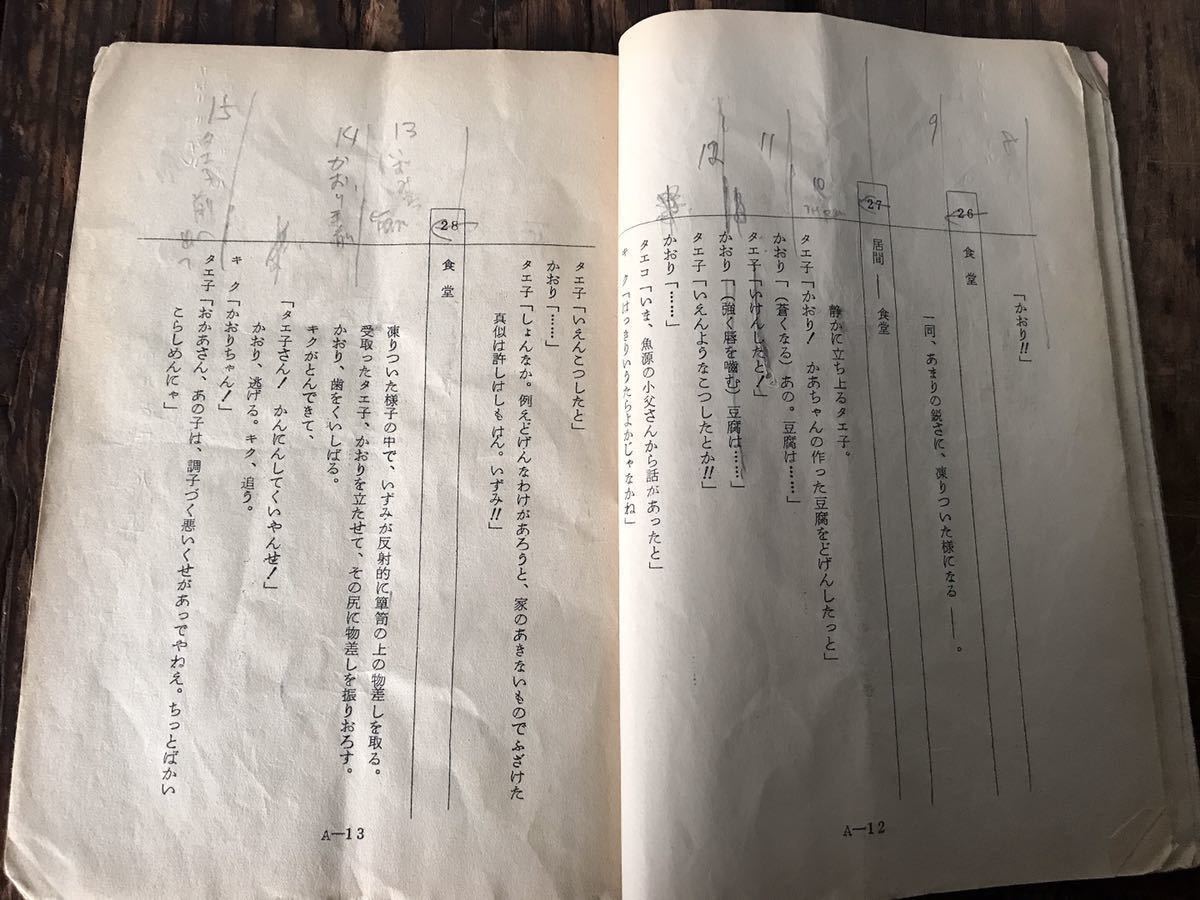 「かおり!!」
26
食堂
一同、あまりの鋭さに、凍りついた様になる――。
27
居間――食堂
静かに立ち上るタエ子。
タエ子「かおり! かあちゃんの作った豆腐をどげんしたっと」
かおり「(蒼くなる)あの。豆腐は……」
タエ子「いけんしたと!」
かおり「(強く唇を噛む)豆腐は……」
タエ子「いえんようなこつしたとか!!」
かおり「……」
タエコ「いま、魚源の小父さんから話があったと」
キク「はっきりいうたらよかじゃなかね」
A―12
タエ子「いえんこつしたと」
かおり「……」
タエ子「しょんなか。例えどげんなわけがあろうと、家のあきないものでふざけた
真似は許しはしもはん。いずみ!!」
28
食堂
凍りついた様子の中で、いずみが反射的に簞笥の上の物差しを取る。
受取ったタエ子、かおりを立たせて、その尻に物差しを振りおろす。
かおり、歯をくいしばる。
キクがとんできて、
「タエ子さん! かんにんしてくいやんせ!」
かおり、逃げる。キク、追う。
キク「かおりちゃん!」
タエ子「おかあさん、あの子は、調子づく悪いくせがあってやねえ。ちっとばかい
こらしめんにゃ」
A―13
8
9
10
11
12
13
14 かおり
15 タエ子